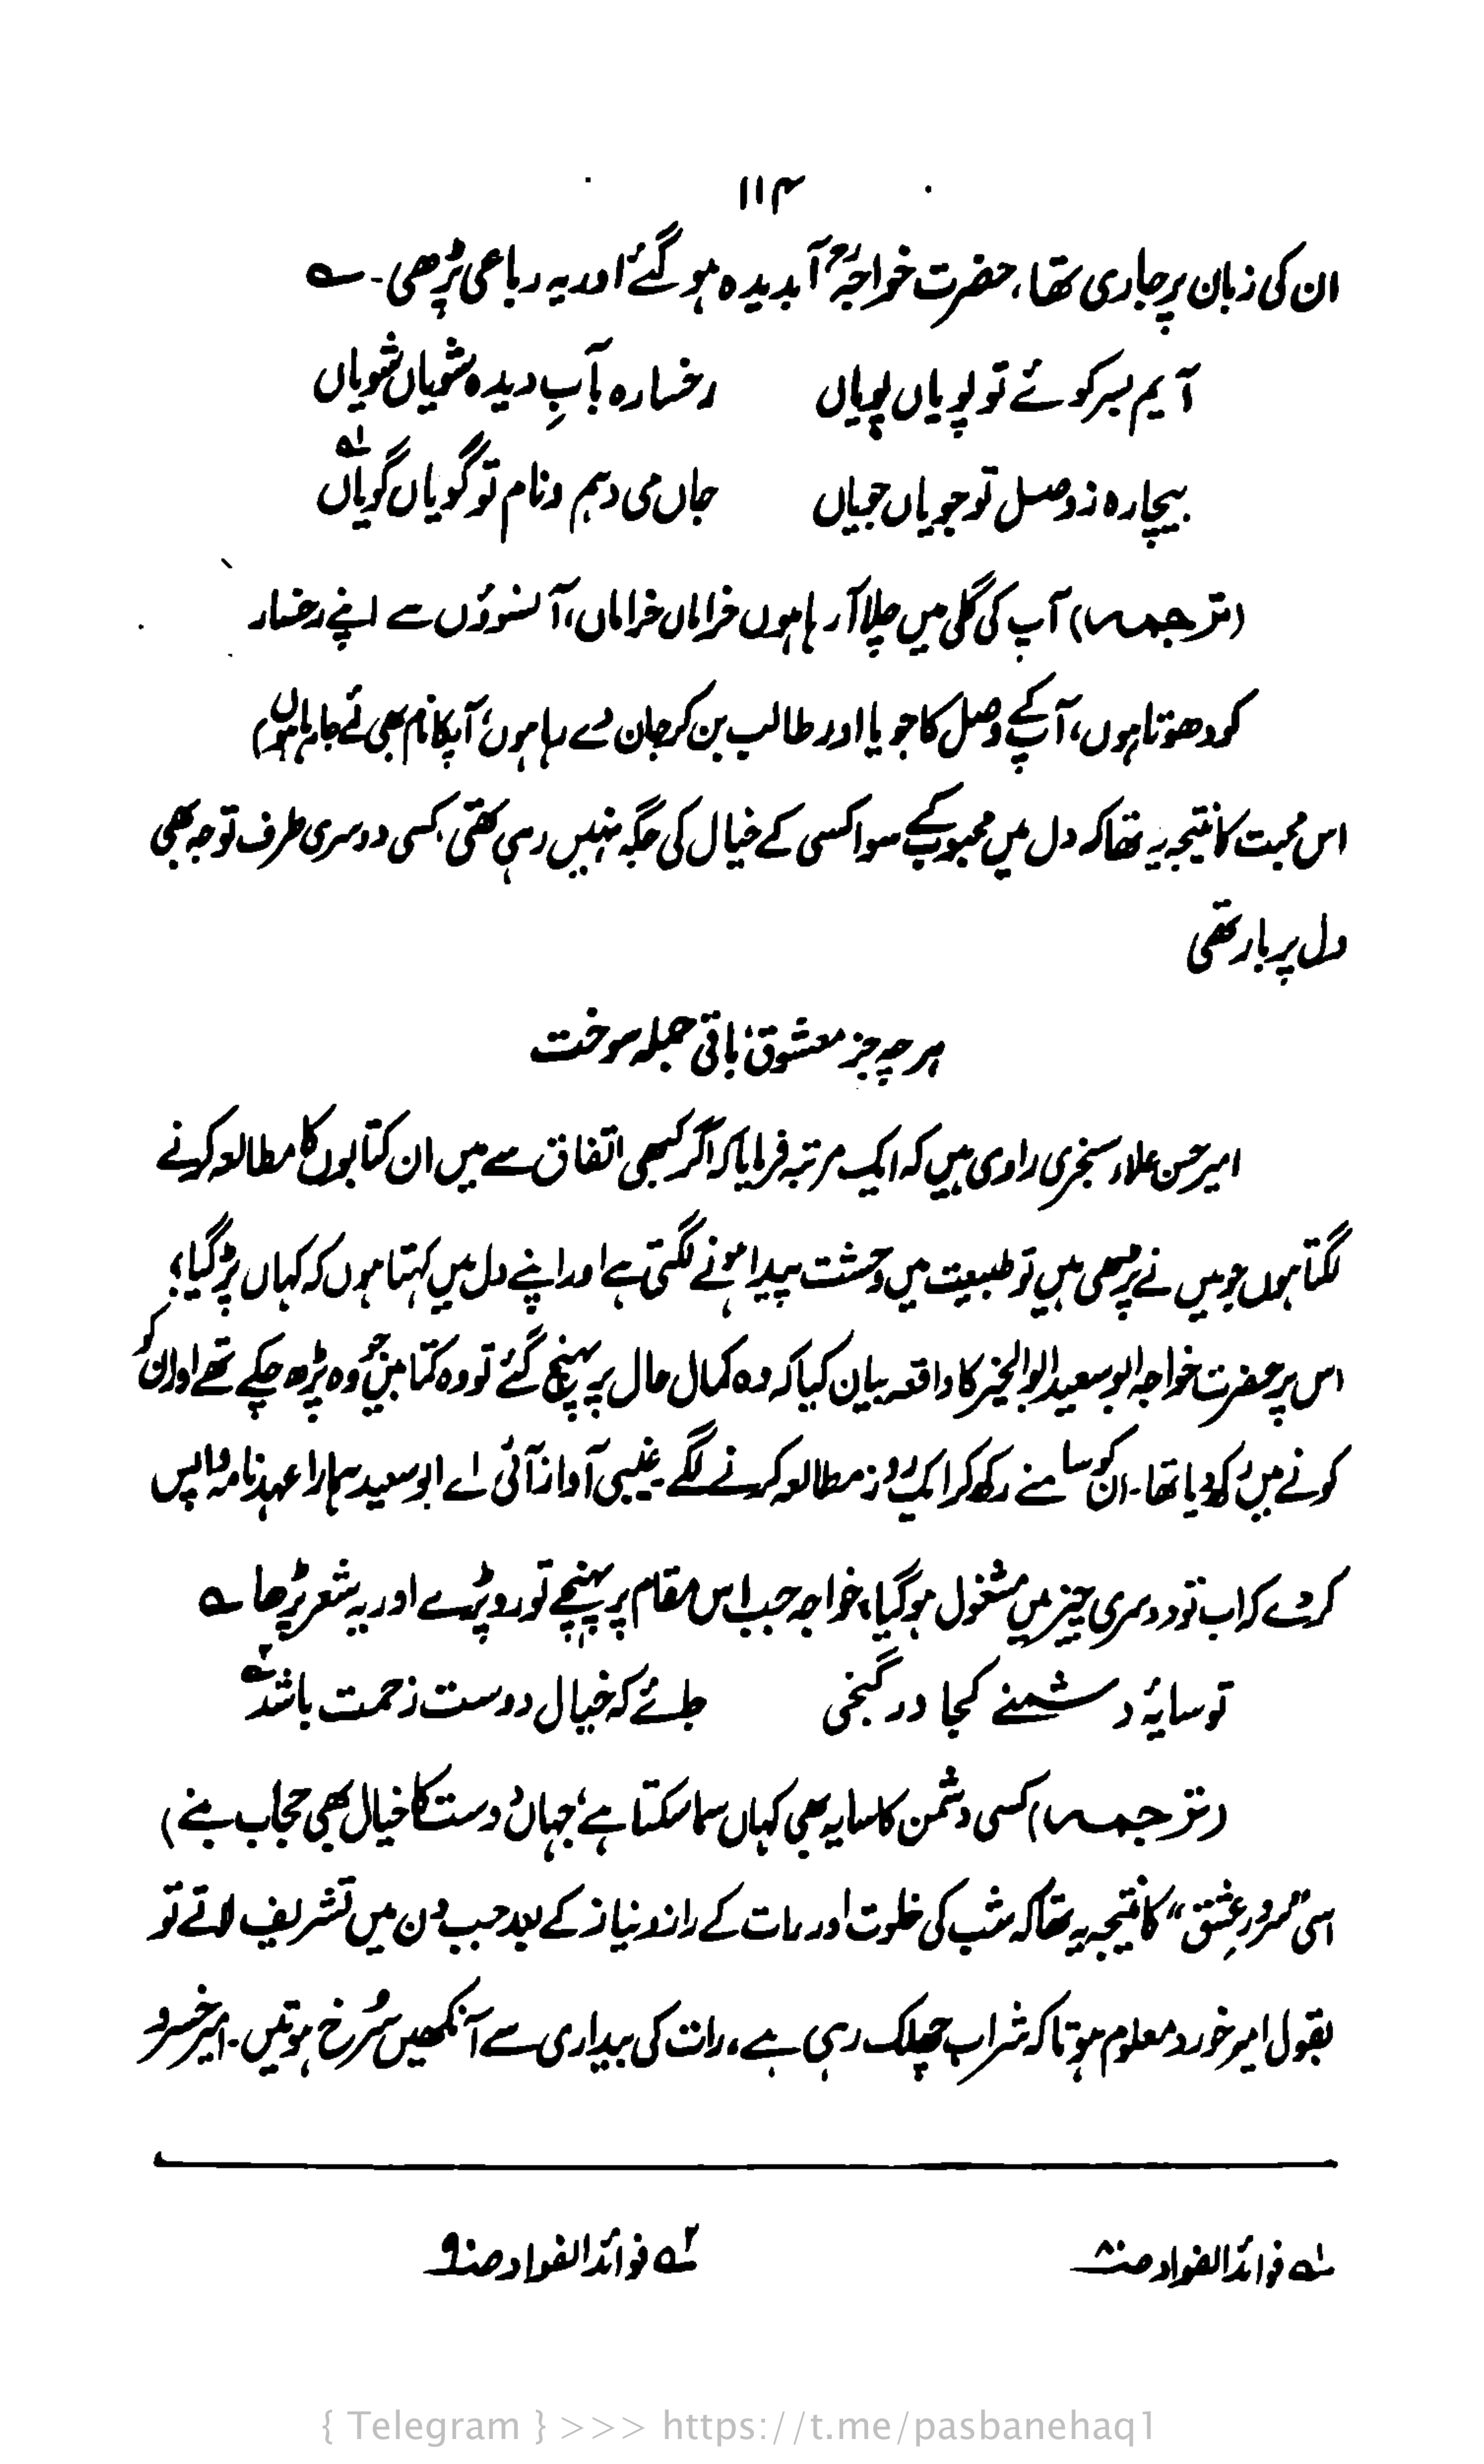 ۱۱۴
ان کی زبان پر جاری تھا، حضرت خواجہؒ آبدیدہ ہو گئے اور یہ رباعی پڑھی۔ ؎
آیم بسر کوئے تو پویاں پویاں رخسارہ بآبِ دیدہ شویاں شویاں
بیچارہ ز وصل تو جویاں جویاں جاں می دہم و نام تو گویاں گویاں ؎۱
(ترجمہ) آپ کی گلی میں چلا آ رہا ہوں خراماں خراماں، آنسوؤں سے اپنے رخسار
کو دھوتا ہوں، آپ کے وصل کا جویا اور طالب بن کر جان دے رہا ہوں، آپکا نام بھی لئے جا رہا ہوں)
اس محبت کا نتیجہ یہ تھا کہ دل میں محبوب کے سوا کسی کے خیال کی جگہ نہیں رہی تھی، کسی دوسری طرف توجہ بھی
دل پر بار تھی
ہر چہ جز معشوق، باقی جملہ سوخت
امیر حسن علاء سنجری راوی ہیں کہ ایک مرتبہ فرمایا کہ اگر کبھی اتفاق سے میں ان کتابوں کا مطالعہ کرنے
لگتا ہوں جو میں نے پڑھی ہیں تو طبیعت میں وحشت پیدا ہونے لگتی ہے اور اپنے دل میں کہتا ہوں کہ کہاں پڑ گیا؟
اس پر حضرت خواجہ ابوسعید ابوالخیر کا واقعہ بیان کیا کہ وہ کمال حال پر پہنچ گئے تو وہ کتابیں جو وہ پڑھ چکے تھے اور ان کو
کونے میں رکھ دیا تھا۔ ان کو سامنے رکھ کر ایک روز مطالعہ کرنے لگے۔ غیبی آواز آئی اے ابوسعید ہمارا عہد نامہ واپس
کر دے کہ اب تو دوسری چیز میں مشغول ہو گیا، خواجہ جب اس مقام پر پہنچے تو رو پڑے اور یہ شعر پڑھا ؎
تو سایۂ دشمنے کجا در گنجی جائے کہ خیال دوست زحمت باشد ؎۲
(ترجمہ) کسی دشمن کا سایہ بھی کہاں سما سکتا ہے، جہاں دوست کا خیال بھی حجاب بنے)
اسی "سرورِ عشق" کا نتیجہ یہ تھا کہ شب کی خلوت اور رات کے راز و نیاز کے بعد جب دن میں تشریف لاتے تو
بقول امیر خورد معلوم ہوتا کہ شراب چھلک رہی ہے، رات کی بیداری سے آنکھیں سُرخ ہوتیں۔ امیر خسرو
؎۱ فوائد الفواد
؎۲ فوائد الفواد
{ Telegram } >>> https://t.me/pasbanehaq1